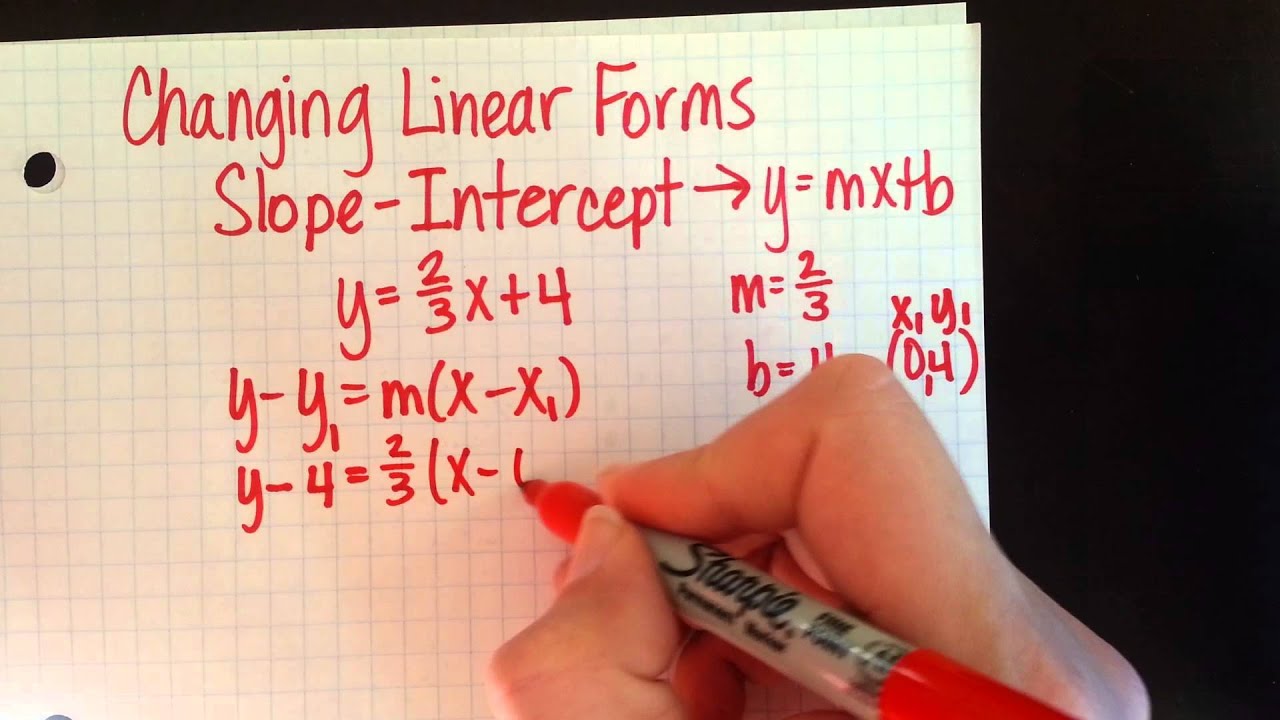 Changing Linear Forms
Slope-Intercept → y = mx+b
y = 2/3 x + 4
m = 2/3
x₁ y₁
b = 4
(0,4)
y - y₁ = m(x - x₁)
y - 4 = 2/3 (x -
Sharpie